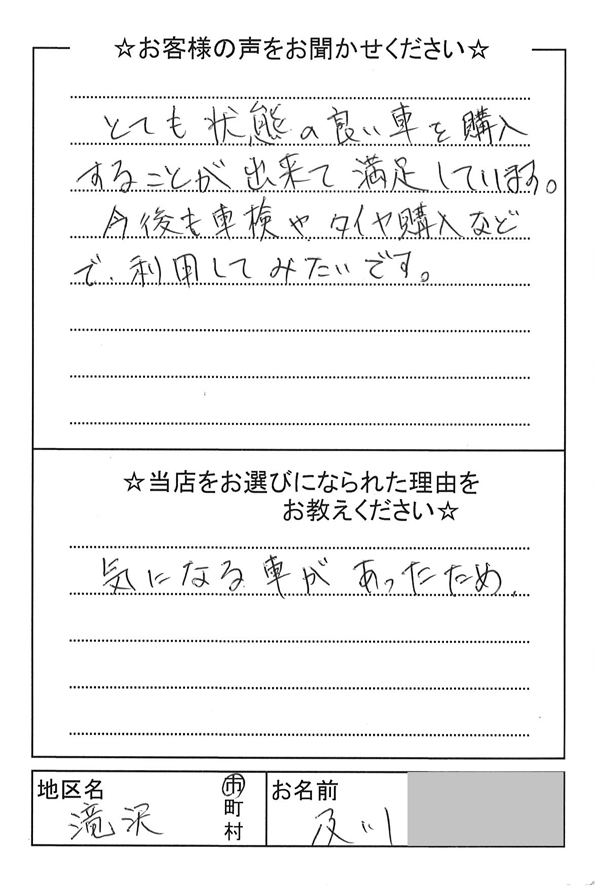 ☆お客様の声をお聞かせください☆
とても状態の良い車を購入
することが出来て満足しています。
今後も車検や、タイヤ購入など
で、利用してみたいです。
☆当店をお選びになられた理由を
お教えください☆
気になる車があったため、
地区名
滝沢
市
町
村
お名前
及川